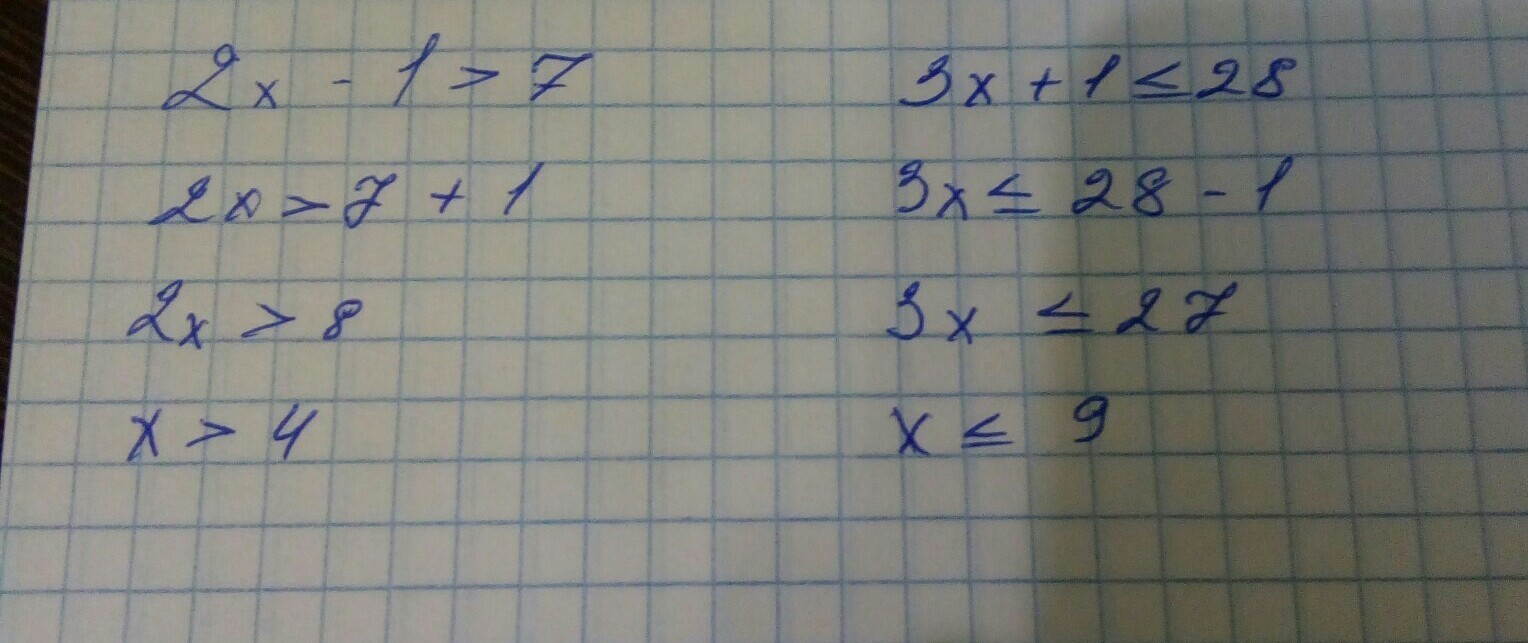 2x - 1 > 7
2x > 7 + 1
2x > 8
x > 4
3x + 1 ≤ 28
3x ≤ 28 - 1
3x ≤ 27
x ≤ 9